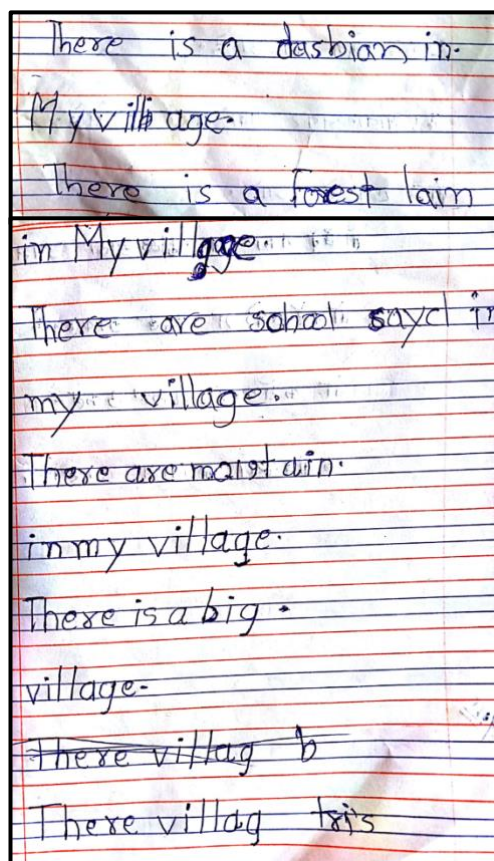 There is a dasbian in.
My village.
There is a Forest lain
in My village.
There are school sayd in
my village.
There are maistain.
in my village.
There is a big.
village.
There villag b
There villag tris